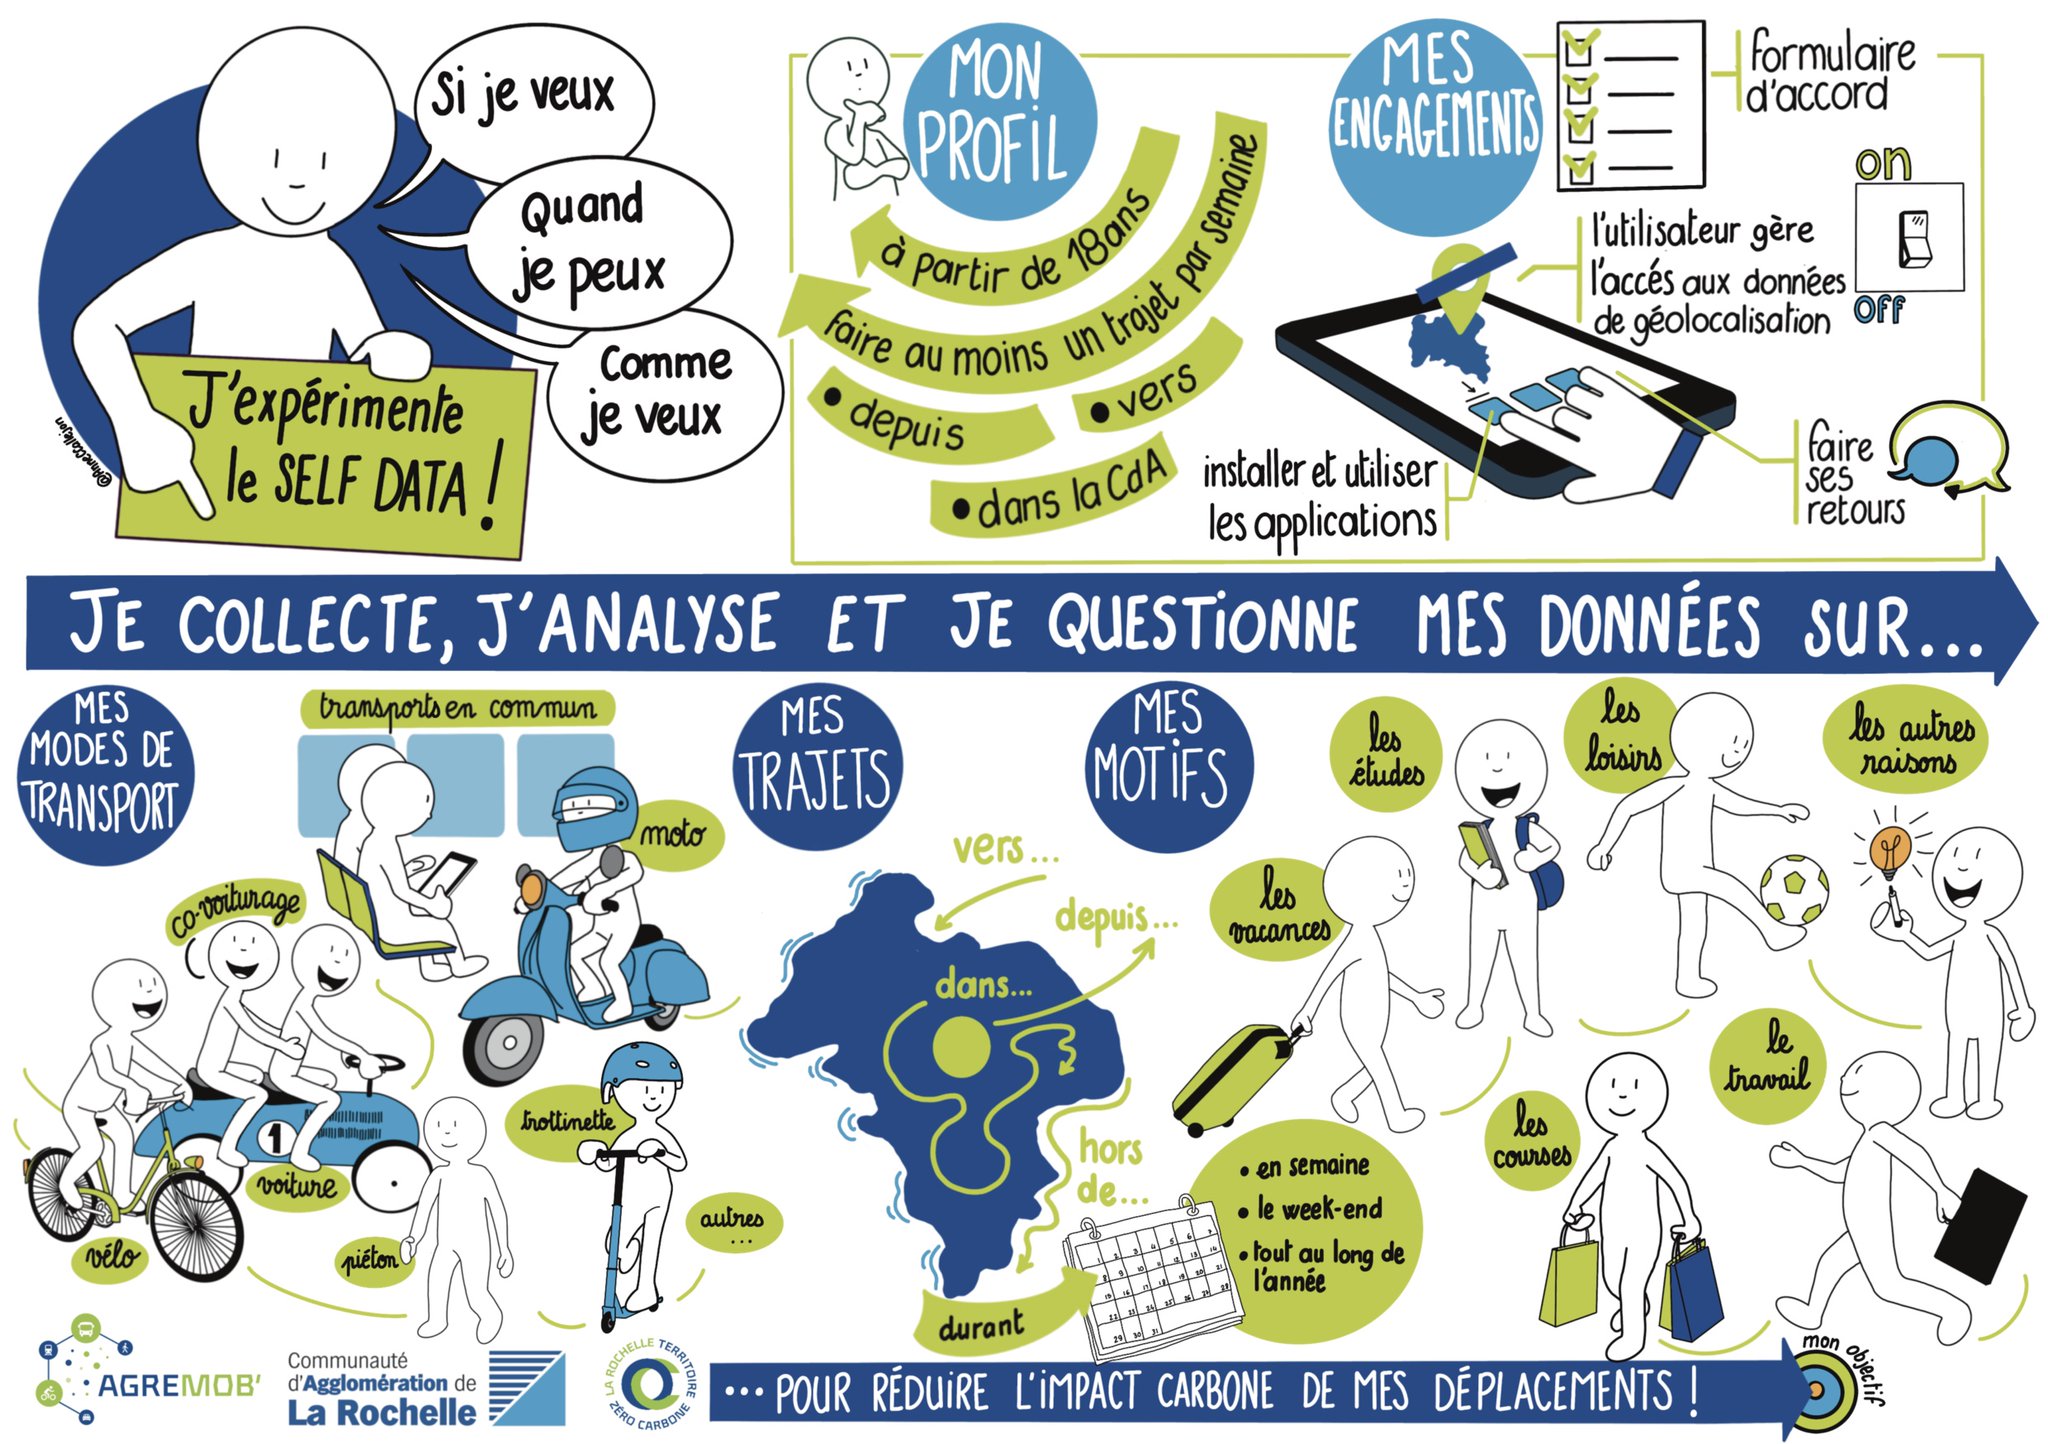 Si je veux
Quand
je peux
Comme
je veux
J'expérimente
le SELF DATA !
@AnneCallejon
MON
PROFIL
à partir de 18ans
faire au moins un trajet par semaine
• depuis
• vers
• dans la CdA
MES
ENGAGEMENTS
formulaire
d'accord
on
off
l'utilisateur gère
l'accés aux données
de géolocalisation
installer et utiliser
les applications
faire
ses
retours
JE COLLECTE, J'ANALYSE ET JE QUESTIONNE MES DONNÉES SUR...
MES
MODES DE
TRANSPORT
transports en commun
moto
co-voiturage
1
voiture
vélo
piéton
trottinette
autres
...
MES
TRAJETS
vers...
depuis...
dans...
hors
de...
durant
• en semaine
• le week-end
• tout au long de
l'année
MES
MOTIFS
les
études
les
loisirs
les autres
raisons
les
vacances
les
courses
le
travail
AGREMOB'
Communauté
d'Agglomération de
La Rochelle
LA ROCHELLE TERRITOIRE
ZÉRO CARBONE
... POUR RÉDUIRE L'IMPACT CARBONE DE MES DÉPLACEMENTS !
mon objectif